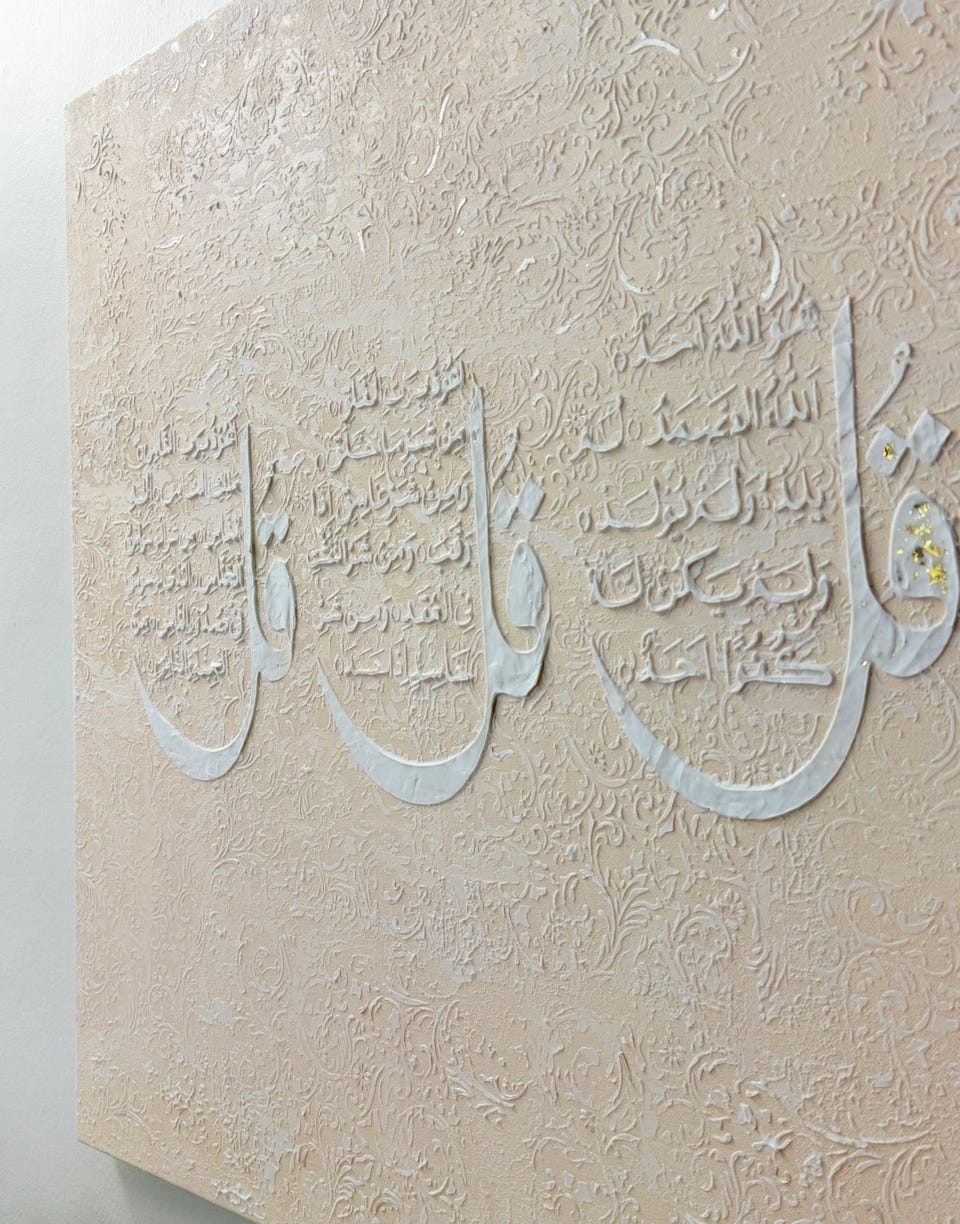 قُل
هُوَ اللهُ أَحَدٌ
اللهُ الصَّمَدُ لَمْ
يَلِدْ وَلَمْ يُولَدْ
وَلَمْ يَكُنْ لَهُ
كُفُوًا أَحَدٌ
قل
أعوذ برب الفلق
من شر ما خلق
ومن شر غاسق إذا
وقب ومن شر النفث
في العقد ومن شر
حاسد إذا حسد
قل
أعوذ برب الناس
ملك الناس إله
الناس من شر
الناس